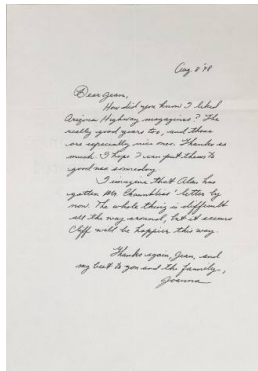 Aug. 8 '98
Dear Jean,
How did you know I liked
Arizona Highway magazines? The
really good years too, and these
are especially nice ones. Thanks so
much. I hope I can put them to
good use someday.
I imagine that Alan has
gotten Mr. Chambliss' letter by
now. The whole thing is difficult
all the way around, but it seems
Cliff will be happier this way.
Thanks again, Jean, and
my best to you and the family,
Joanna